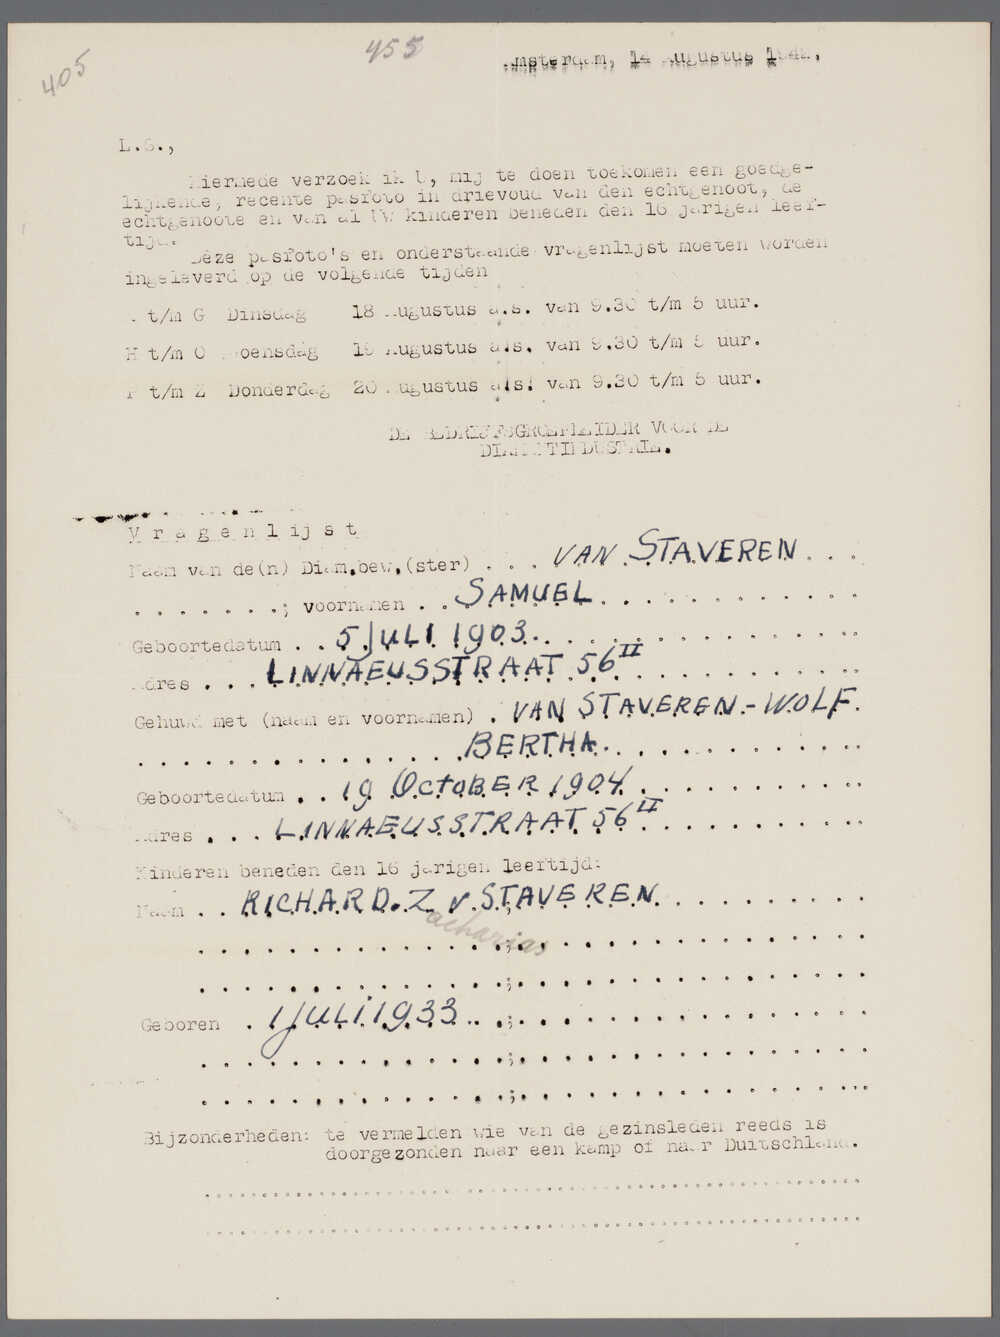 405
455
Amsterdam, 14 Augustus 1942,
L.S.,
Hiermede verzoek ik U, mij te doen toekomen een goedge-
lijkende, recente pasfoto in drievoud van den echtgenoot, de
echtgenoote en van al Uw kinderen beneden den 16 jarigen leef-
tijd.
Deze pasfoto's en onderstaande vragenlijst moeten worden
ingeleverd op de volgende tijden
A t/m G Dinsdag 18 Augustus a.s. van 9.30 t/m 5 uur.
H t/m O Woensdag 19 Augustus a.s. van 9.30 t/m 5 uur.
P t/m Z Donderdag 20 Augustus a.s. van 9.30 t/m 5 uur.
DE BEDRIJFSGROEPLEIDER VOOR DE
DIAMANTINDUSTRIE.
Vragenlijst
Naam van de(n) Diam.bew.(ster) . . . VAN STAVEREN . . .
. . . . . . . ; voornamen . . SAMUEL . . . . . . . . . . . .
Geboortedatum . . 5 JULI 1903 . . . . . . . . . . . . . . .
Adres . . . LINNAEUSSTRAAT 56 II . . . . . . . . . . .
Gehuwd met (naam en voornamen) . VAN STAVEREN - WOLF.
. . . . . . . . . . . . . . . BERTHA . . . . . . . . . . . .
Geboortedatum . . 19 OctoBER 1904 . . . . . . . . . . .
Adres . . . LINNAEUSSTRAAT 56 II . . . . . . . . . . .
Kinderen beneden den 16 jarigen leeftijd:
Naam . . RICHARD. Z v. STAVEREN . . . . . . . . . .
acharias
. . . . . . . . . . . . . . . . ; . . . . . . . . . . . . . . . . . .
. . . . . . . . . . . . . . . . ; . . . . . . . . . . . . . . . . . .
Geboren . 1 JULI 1933 . . . ; . . . . . . . . . . . . . . . . . .
. . . . . . . . . . . . . . . . ; . . . . . . . . . . . . . . . . . .
. . . . . . . . . . . . . . . . ; . . . . . . . . . . . . . . . . . .
Bijzonderheden: te vermelden wie van de gezinsleden reeds is
doorgezonden naar een kamp of naar Duitschland.
............................................................
............................................................